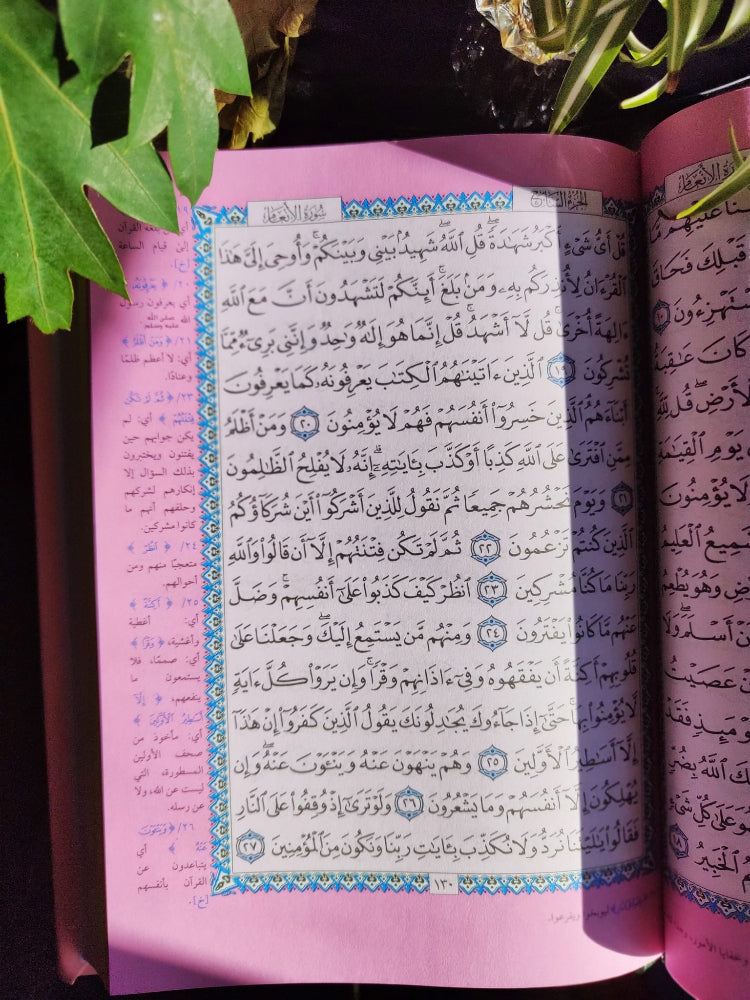 سُورَةُ الأَنْعَامِ
الجُزْءُ السَّابِعُ
قُلْ أَىُّ شَىْءٍ أَكْبَرُ شَهَٰدَةًۖ قُلِ ٱللَّهُۖ شَهِيدُۢ بَيْنِى وَبَيْنَكُمْۚ وَأُوحِىَ إِلَىَّ هَٰذَا
ٱلْقُرْءَانُ لِأُنذِرَكُم بِهِۦ وَمَنۢ بَلَغَۚ أَئِنَّكُمْ لَتَشْهَدُونَ أَنَّ مَعَ ٱللَّهِ
ءَالِهَةً أُخْرَىٰۚ قُل لَّآ أَشْهَدُۚ قُلْ إِنَّمَا هُوَ إِلَٰهٌ وَٰحِدٌ وَإِنَّنِى بَرِىٓءٌ مِّمَّا
تُشْرِكُونَ ١٩ ٱلَّذِينَ ءَاتَيْنَٰهُمُ ٱلْكِتَٰبَ يَعْرِفُونَهُۥ كَمَا يَعْرِفُونَ
أَبْنَآءَهُمُ ٱلَّذِينَ خَسِرُوٓا۟ أَنفُسَهُمْ فَهُمْ لَا يُؤْمِنُونَ ٢٠ وَمَنْ أَظْلَمُ
مِمَّنِ ٱفْتَرَىٰ عَلَى ٱللَّهِ كَذِبًا أَوْ كَذَّبَ بِـَٔايَٰتِهِۦٓۗ إِنَّهُۥ لَا يُفْلِحُ ٱلظَّٰلِمُونَ
٢١ وَيَوْمَ نَحْشُرُهُمْ جَمِيعًا ثُمَّ نَقُولُ لِلَّذِينَ أَشْرَكُوٓا۟ أَيْنَ شُرَكَآؤُكُمُ
ٱلَّذِينَ كُنتُمْ تَزْعُمُونَ ٢٢ ثُمَّ لَمْ تَكُن فِتْنَتُهُمْ إِلَّآ أَن قَالُوا۟ وَٱللَّهِ
رَبِّنَا مَا كُنَّا مُشْرِكِينَ ٢٣ ٱنظُرْ كَيْفَ كَذَبُوا۟ عَلَىٰٓ أَنفُسِهِمْۚ وَضَلَّ
عَنْهُم مَّا كَانُوا۟ يَفْتَرُونَ ٢٤ وَمِنْهُم مَّن يَسْتَمِعُ إِلَيْكَۖ وَجَعَلْنَا عَلَىٰ
قُلُوبِهِمْ أَكِنَّةً أَن يَفْقَهُوهُ وَفِىٓ ءَاذَانِهِمْ وَقْرًاۚ وَإِن يَرَوْا۟ كُلَّ ءَايَةٍ
لَّا يُؤْمِنُوا۟ بِهَاۚ حَتَّىٰٓ إِذَا جَآءُوكَ يُجَٰدِلُونَكَ يَقُولُ ٱلَّذِينَ كَفَرُوٓا۟ إِنْ هَٰذَآ
إِلَّآ أَسَٰطِيرُ ٱلْأَوَّلِينَ ٢٥ وَهُمْ يَنْهَوْنَ عَنْهُ وَيَنْـَٔوْنَ عَنْهُۖ وَإِن
يُهْلِكُونَ إِلَّآ أَنفُسَهُمْ وَمَا يَشْعُرُونَ ٢٦ وَلَوْ تَرَىٰٓ إِذْ وُقِفُوا۟ عَلَى ٱلنَّارِ
فَقَالُوا۟ يَٰلَيْتَنَا نُرَدُّ وَلَا نُكَذِّبَ بِـَٔايَٰتِ رَبِّنَا وَنَكُونَ مِنَ ٱلْمُؤْمِنِينَ ٢٧
١٣٠
إلى قيام الساعة
[خ].
٢٠/ ﴿يَعْرِفُونَهُ﴾
أي يعرفون رسول
الله ﷺ
٢١/ ﴿وَمَنْ أَظْلَمُ﴾
أي: لا أعظم ظلمًا
وعنادًا.
٢٣/ ﴿ثُمَّ لَمْ تَكُن
فِتْنَتُهُمْ﴾ أي: لم
يكن جوابهم حين
يفتنون ويختبرون
بذلك السؤال إلا
إنكارهم لشركهم
وحلفهم أنهم ما
كانوا مشركين.
٢٤/ ﴿ٱنظُرْ﴾
متعجبًا منهم ومن
أحوالهم.
٢٥/ ﴿أَكِنَّةً﴾
أي: أغطية
وأغشية، ﴿وَقْرًا﴾
أي: صممًا، فلا
يستمعون ما
ينفعهم، ﴿إِلَّآ
أَسَٰطِيرُ ٱلْأَوَّلِينَ﴾
أي: مأخوذ من
صحف الأولين
المسطورة، التي
ليست عن الله، ولا
عن رسله.
٢٦/ ﴿وَيَنْـَٔوْنَ
عَنْهُ﴾ أي
يتباعدون عن
القرآن بأنفسهم
[خ].
سُورَةُ الأَنْعَامِ
قَبْلِكَ فَحَاقَ
١٠
كَانَ عَٰقِبَةُ
قُل لِّلَّهِ
يَوْمِ ٱلْقِيَٰمَةِ
لَا يُؤْمِنُونَ
ٱلْعَلِيمُ
وَهُوَ يُطْعِمُ
أَسْلَمَۖ وَلَا
عَصَيْتُ
فَقَدْ
ٱللَّهُ بِضُرٍّ
عَلَىٰ كُلِّ شَىْءٍ
ٱلْخَبِيرُ ١٨